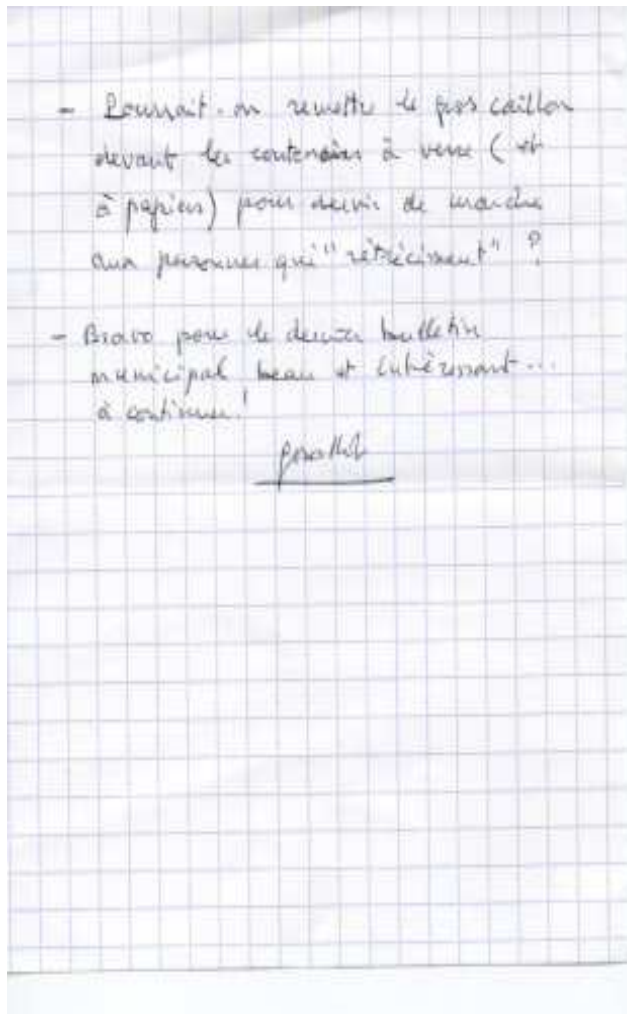 - Pourrait-on remettre le gros caillou
devant les containers à verre (et
à papiers) pour servir de marche
aux personnes qui "rétrécissent" ?
- Bravo pour le dernier bulletin
municipal beau et intéressant...
à continuer !